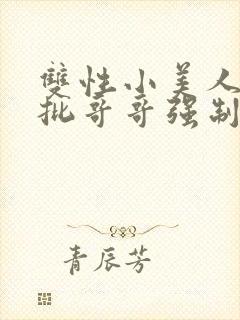 雙性小美人
批哥哥强制
青辰芳